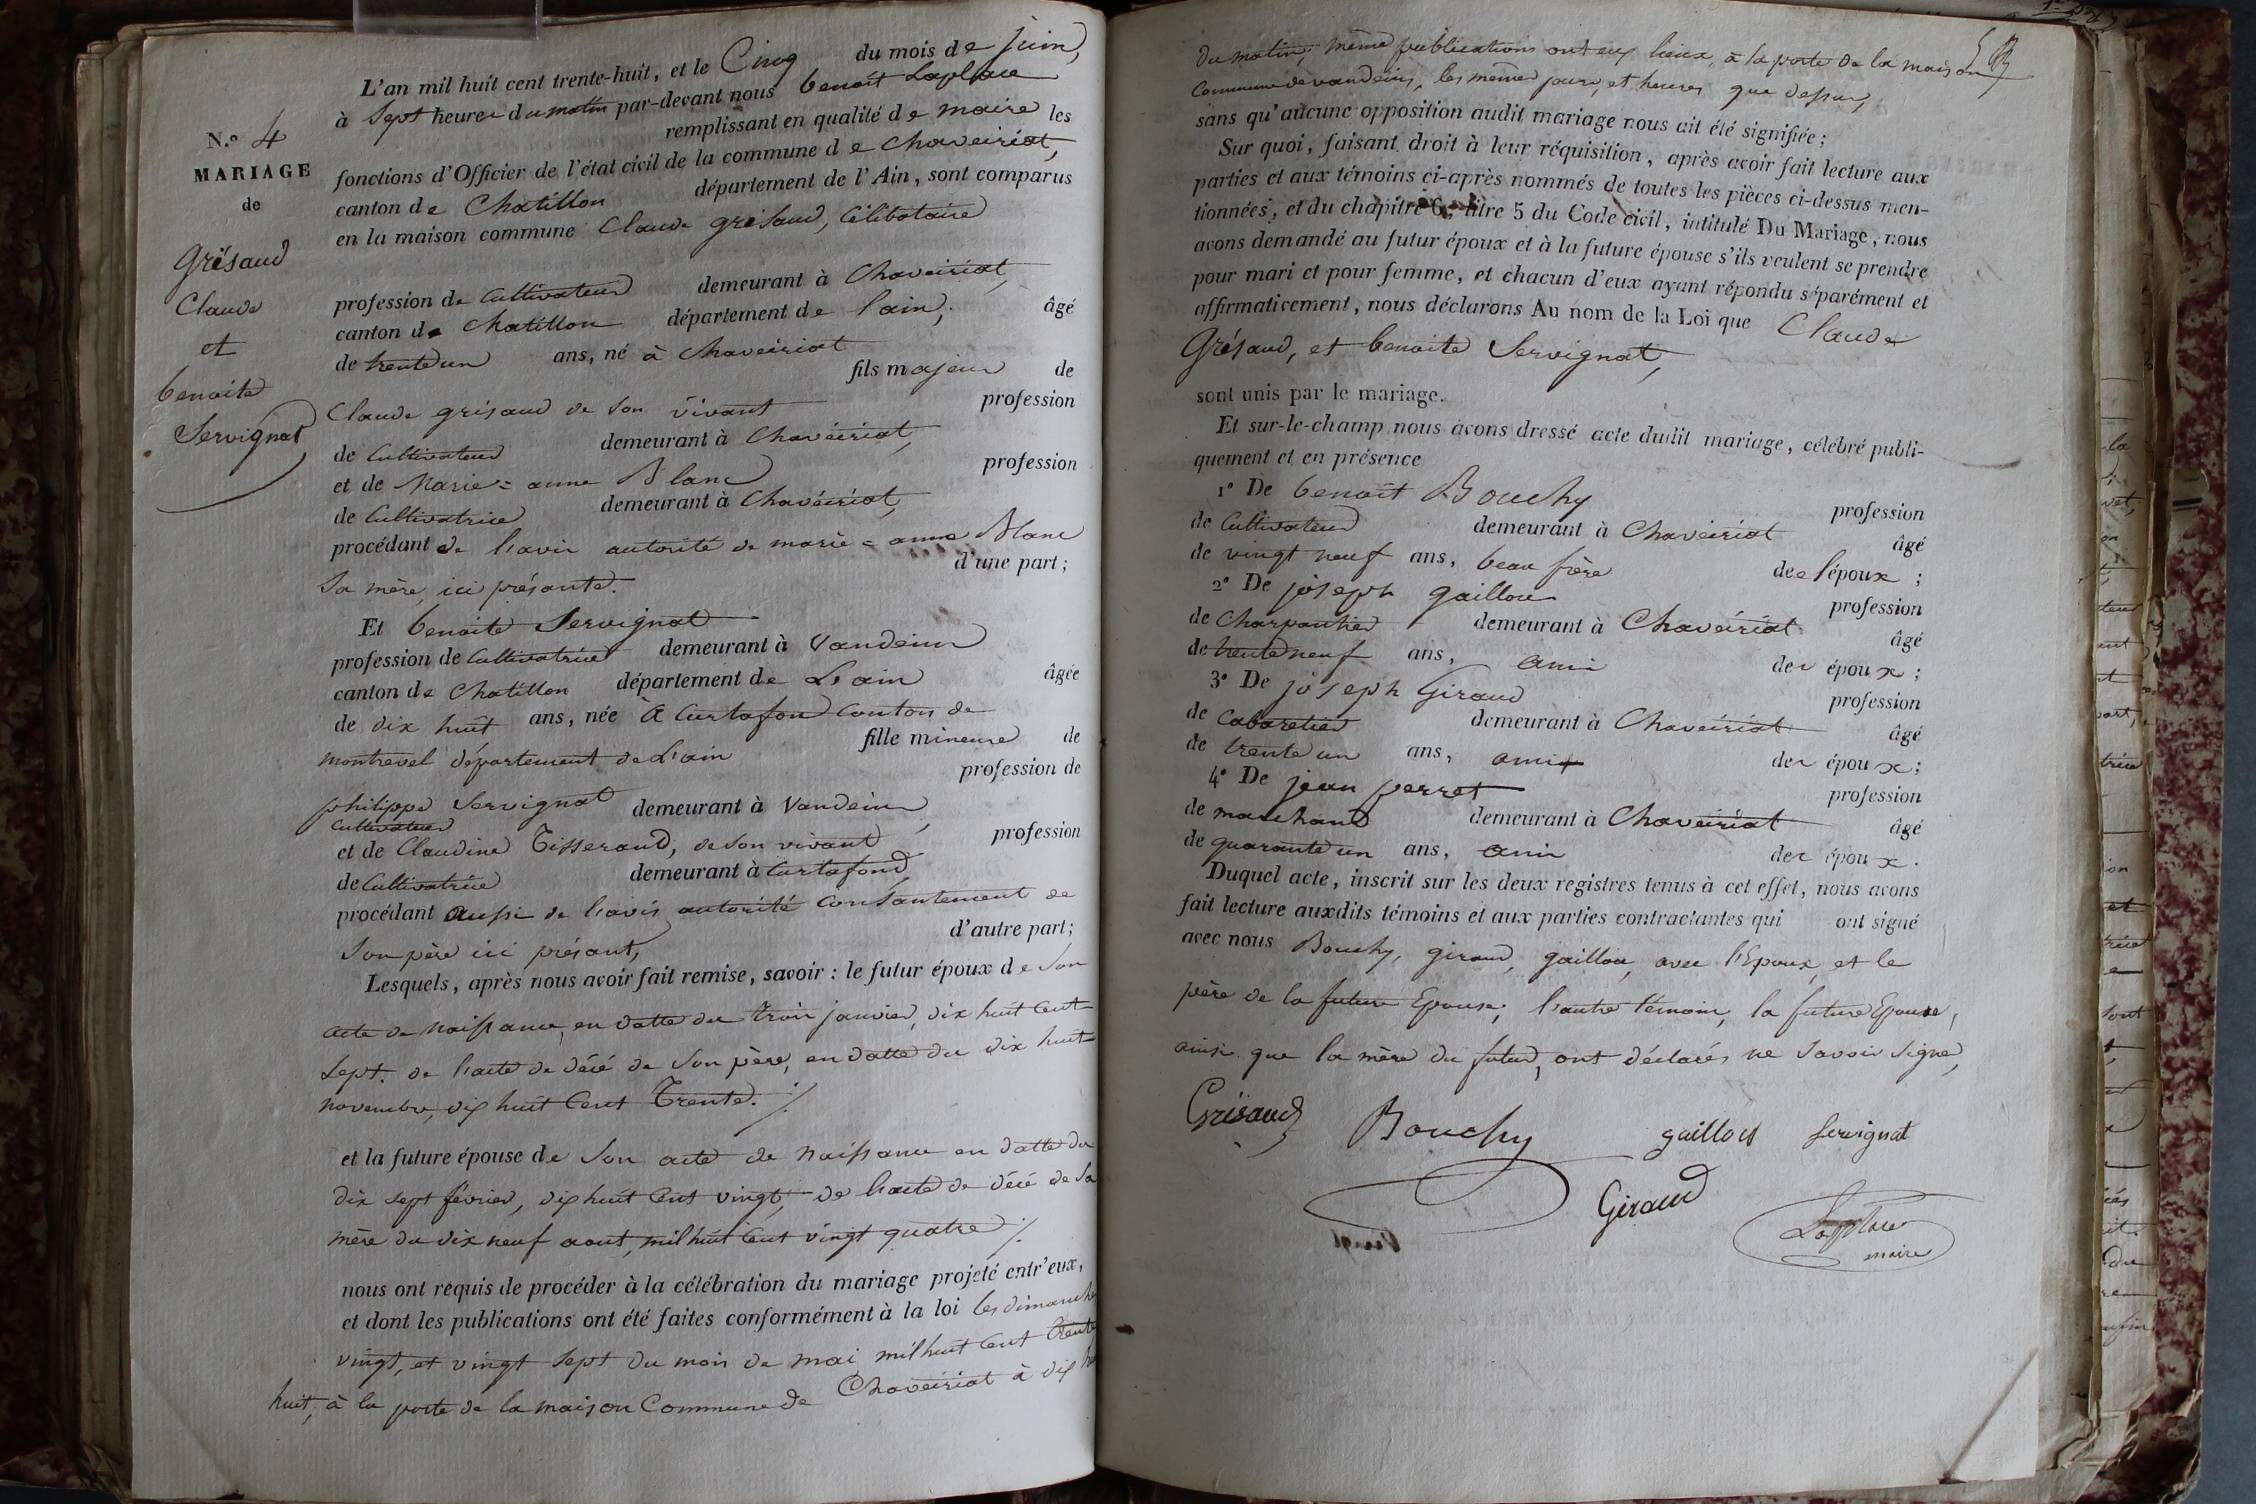 N.º 4
MARIAGE
de
Grésaud
Claude
et
benoite
Servignat
L'an mil huit cent trente-huit, et le Cinq du mois de juin,
à Sept heures du matin par-devant nous benoît Laplace
remplissant en qualité de maire les
fonctions d'Officier de l'état civil de la commune de Chaveiriat,
canton de Chatillon département de l'Ain, sont comparus
en la maison commune Claude grésaud, Célibataire
profession de Cultivateur demeurant à Chaveiriat,
canton de Chatillon département de l'ain, âgé
de trente un ans, né à Chaveiriat
fils majeur de
Claude grisaud de son vivant profession
de Cultivateur demeurant à Chavéiriat,
et de Marie=anne Blanc profession
de Cultivatrice demeurant à Chavéiriat,
procédant de l'avis autorité de marie=anne Blanc
d'une part;
Sa mère, ici présante.
Et benoite Servignat
profession de Cultivatrice demeurant à Vandeins
canton de Chatillon département de L'ain âgée
de dix huit ans, née à Curtafond canton de
montrevel département de L'ain fille mineure de
philippe Servignat profession de
Cultivateur demeurant à Vandeins,
et de Claudine Tisserand, de son vivant profession
de Cultivatrice demeurant à Curtafond,
procédant aussi de l'avis autorité consantement de
d'autre part;
Son père ici présant,
Lesquels, après nous avoir fait remise, savoir: le futur époux de Son
acte de naissance, en datte du trois janvier, dix huit Cent
Sept. de l'acte de décé de Son père, en datte du dix huit
novembre, dix huit Cent Trente. /.
et la future épouse de Son acte de naissance en datte du
dix sept février, dix huit Cent vingt, de l'acte de décé de Sa
mère du dix neuf aout, mil huit Cent vingt quatre /.
nous ont requis de procéder à la célébration du mariage projeté entr'eux,
et dont les publications ont été faites conformément à la loi les dimanches
vingt, et vingt Sept du mois de mai mil huit Cent trente
huit, à la porte de la maison Commune de Chavéiriat à dix
du matin, même publications ont eux lieux, à la porte de la maison
Commune de vandeins, les mêmes jours, et heures que dessus,
sans qu'aucune opposition audit mariage nous ait été signifiée;
Sur quoi, faisant droit à leur réquisition, après avoir fait lecture aux
parties et aux témoins ci-après nommés de toutes les pièces ci-dessus men-
tionnées, et du chapitre 6, titre 5 du Code civil, intitulé Du Mariage, nous
avons demandé au futur époux et à la future épouse s'ils veulent se prendre
pour mari et pour femme, et chacun d'eux ayant répondu séparément et
affirmativement, nous déclarons Au nom de la Loi que Claude
Grésaud, et benoite Servignat,
sont unis par le mariage.
Et sur-le-champ nous avons dressé acte dudit mariage, célébré publi-
quement et en présence
1º De benoît Bouchy profession
de Cultivateur demeurant à Chaveiriat âgé
de vingt neuf ans, beau frère de l'époux;
2º De joseph gaillou profession
de Charpantier demeurant à Chavéiriat âgé
de trente neuf ans, ami des époux;
3º De joseph Giraud profession
de Cabaretier demeurant à Chavéiriat âgé
de trente un ans, ami des époux;
4º De jean perret profession
de marchand demeurant à Chavéiriat âgé
de quarante un ans, ami des époux.
Duquel acte, inscrit sur les deux registres tenus à cet effet, nous avons
fait lecture auxdits témoins et aux parties contractantes qui ont signé
avec nous Bouchy, giraud, gaillou, avec l'Epoux, et le
père de la future Epouse; l'autre témoin, la future Epouse,
ainsi que la mère du futur, ont déclarés ne Savoir signe,
Grisaud Bouchy gaillou Servignat
Giraud
Laplace
maire